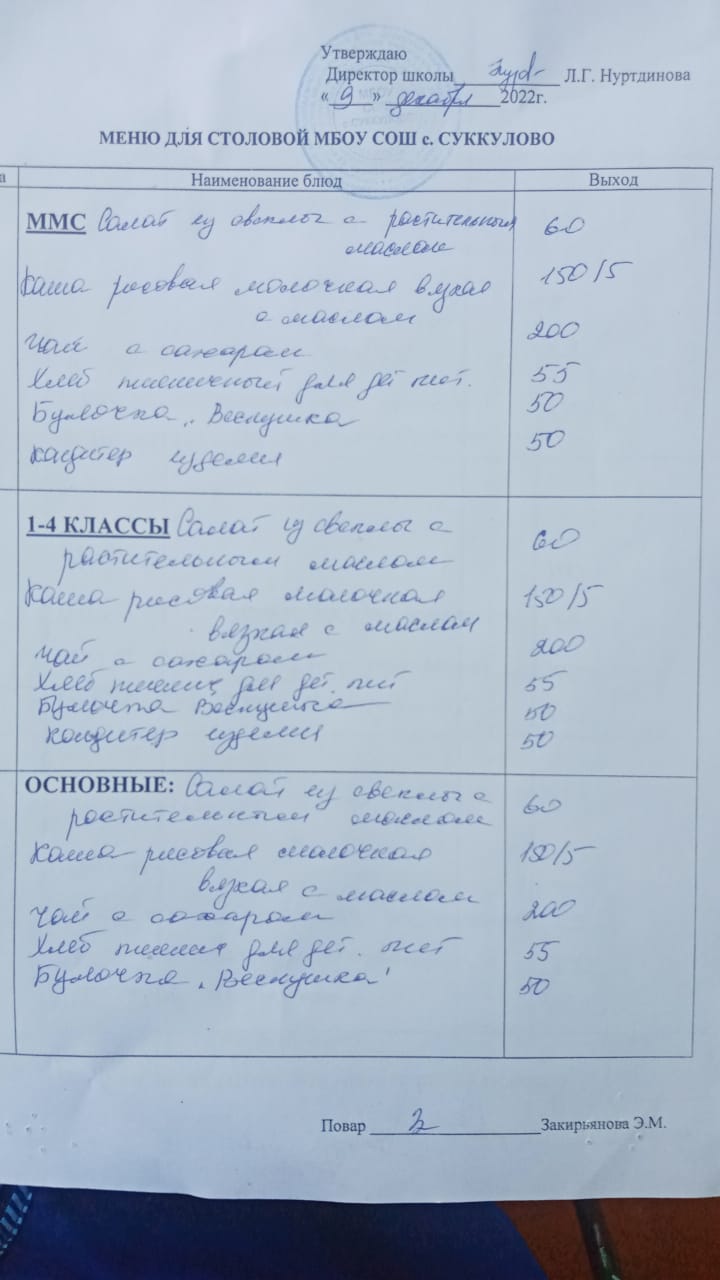 Утверждаю
Директор школы Л.Г. Нуртдинова
« 9 » декабря 2022г.
МЕНЮ ДЛЯ СТОЛОВОЙ МБОУ СОШ с. СУККУЛОВО
а Наименование блюд Выход
ММС Салат из свеклы с растительным 60
маслом
Каша рисовая молочная вязкая 150/5
с маслом
Чай с сахаром 200
Хлеб пшеничный для дет пит. 55
Булочка „Веснушка 50
кондитер изделия 50
1-4 КЛАССЫ Салат из свеклы с
растительным маслом 60
Каша рисовая молочная 150/5
вязкая с маслом
Чай с сахаром 200
Хлеб пшенич для дет. пит 55
Булочка Веснушка 50
кондитер изделия 50
ОСНОВНЫЕ: Салат из свеклы с 60
растительным маслом
Каша рисовая молочная 150/5
вязкая с маслом
Чай с сахаром 200
Хлеб пшенич для дет. пит 55
Булочка „Веснушка" 50
Повар Закирьянова Э.М.